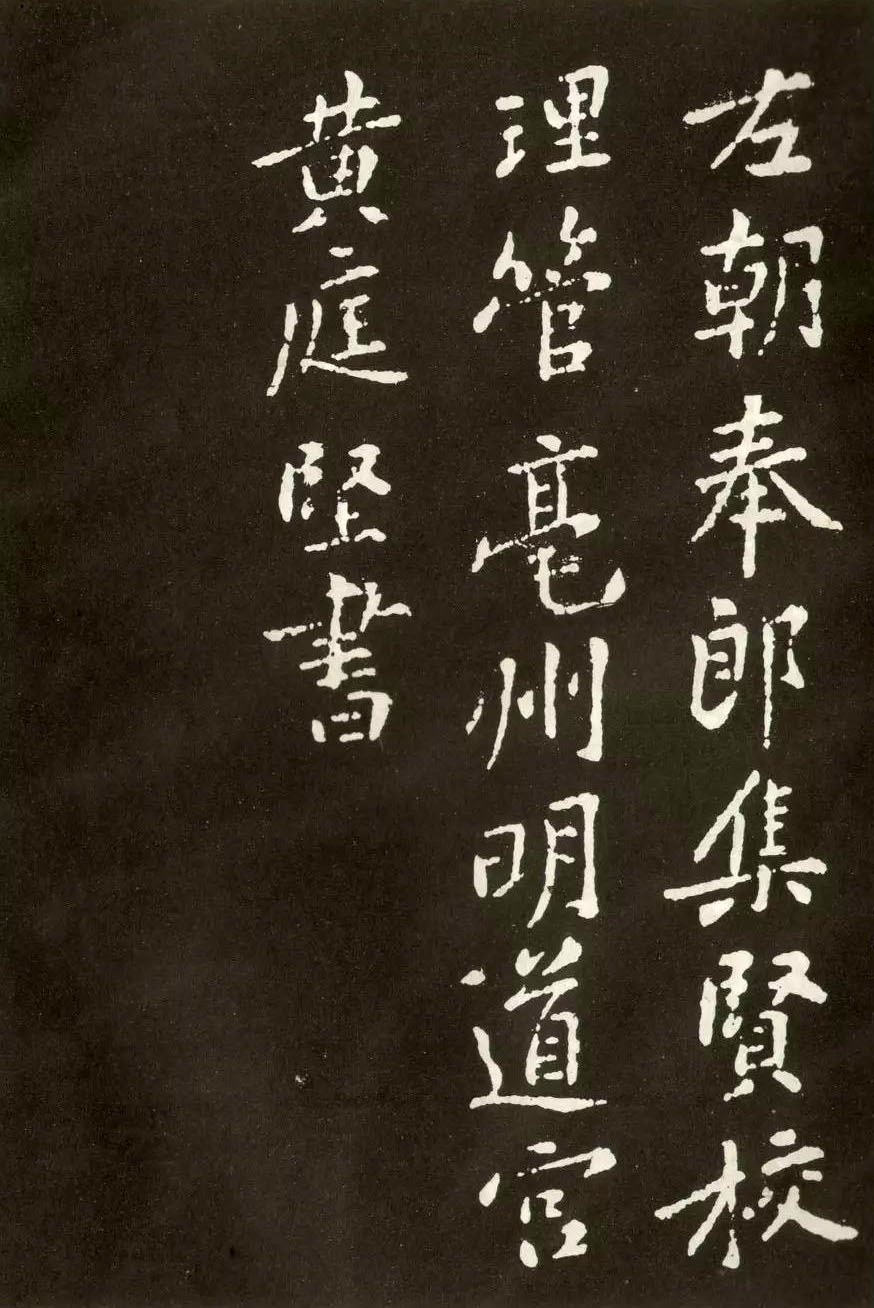 左朝奉郎集賢校
理管亳州明道宮
黄庭堅書